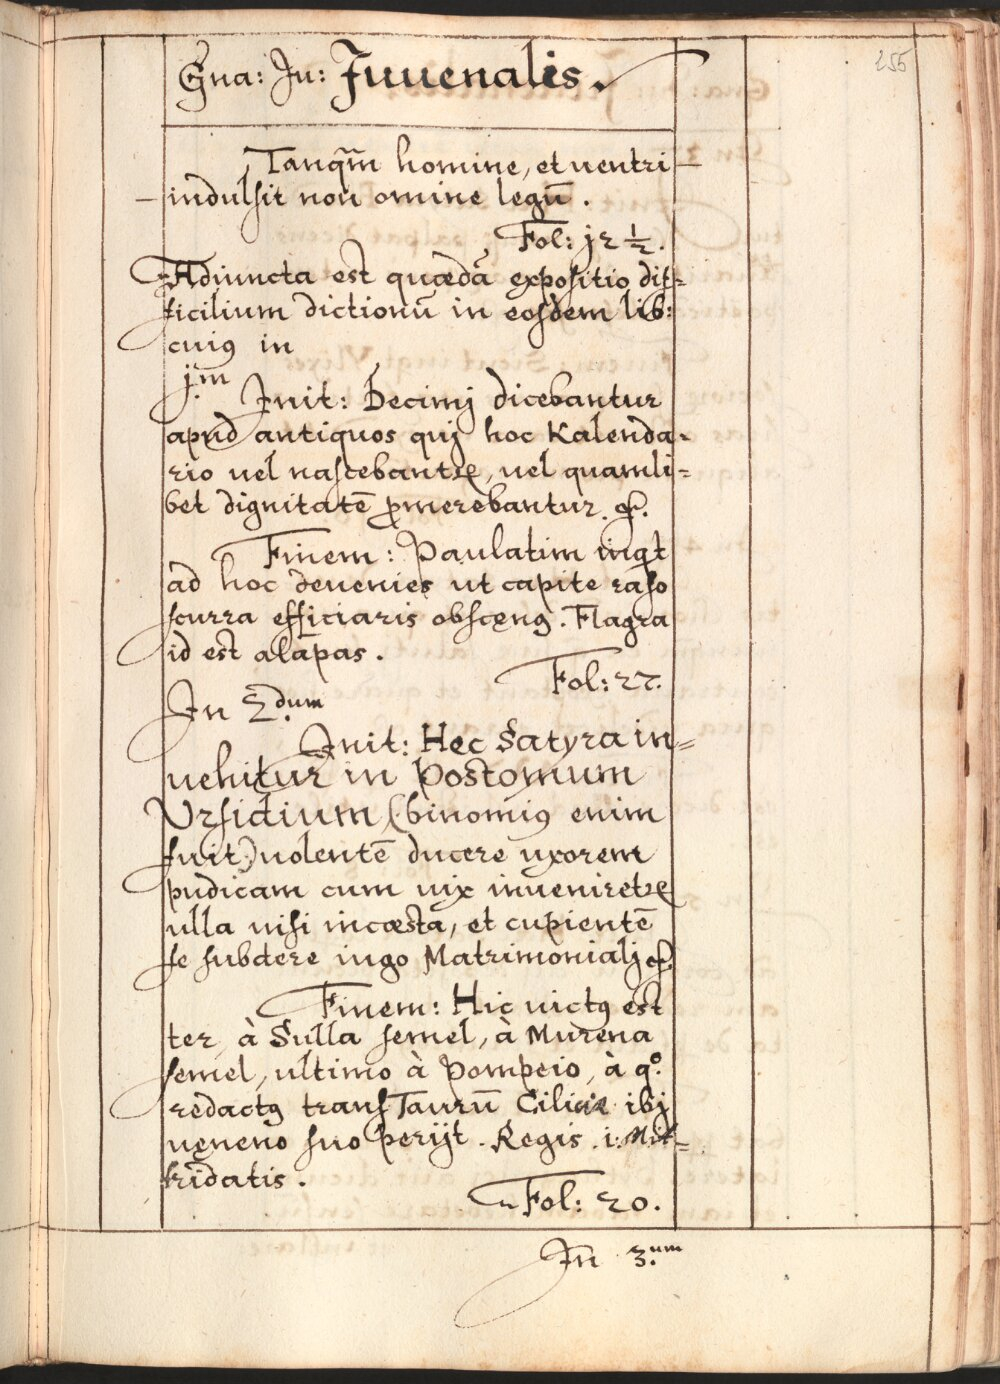 Gna: Ju: Juuenalis.
255
Tanqm̃ homine, et uentri
indulsit non omine legũ.
Fol: j2 ½.
Adiuncta est quædã expositio dif=
ficilium dictionũ in eosdem lib:
cuiꝰ in
j.m
Init: Decimj dicebantur
apud antiquos quj hoc Kalenda=
rio uel nascebantꝛ, uel quamli=
bet dignitatẽ ꝓmerebantur. &c.
Finem: Paulatim inqt
ad hoc deuenies ut capite raso
scurra efficiaris obscęnꝰ. Flagra
id est alapas.
Fol: 27.
In 2.dum
Init: Hęc Satyra in=
uehitur in Postomum
Vrsidium (binomiꝰ enim
fuit) uolentẽ ducere uxorem
pudicam cum uix inueniretꝛ
ulla nisi incæsta, et cupientẽ
se subdere iugo Matrimonialj &c.
Finem: Hic uictꝰ est
ter, à Sulla semel, à Murena
semel, ultimo à Pompeio, à qº.
redactꝰ trans Taurũ Ciliciæ ibj
uęneno suo perijt. Regis .i: Mit=
kridatis.
Fol: 20.
In 3.um